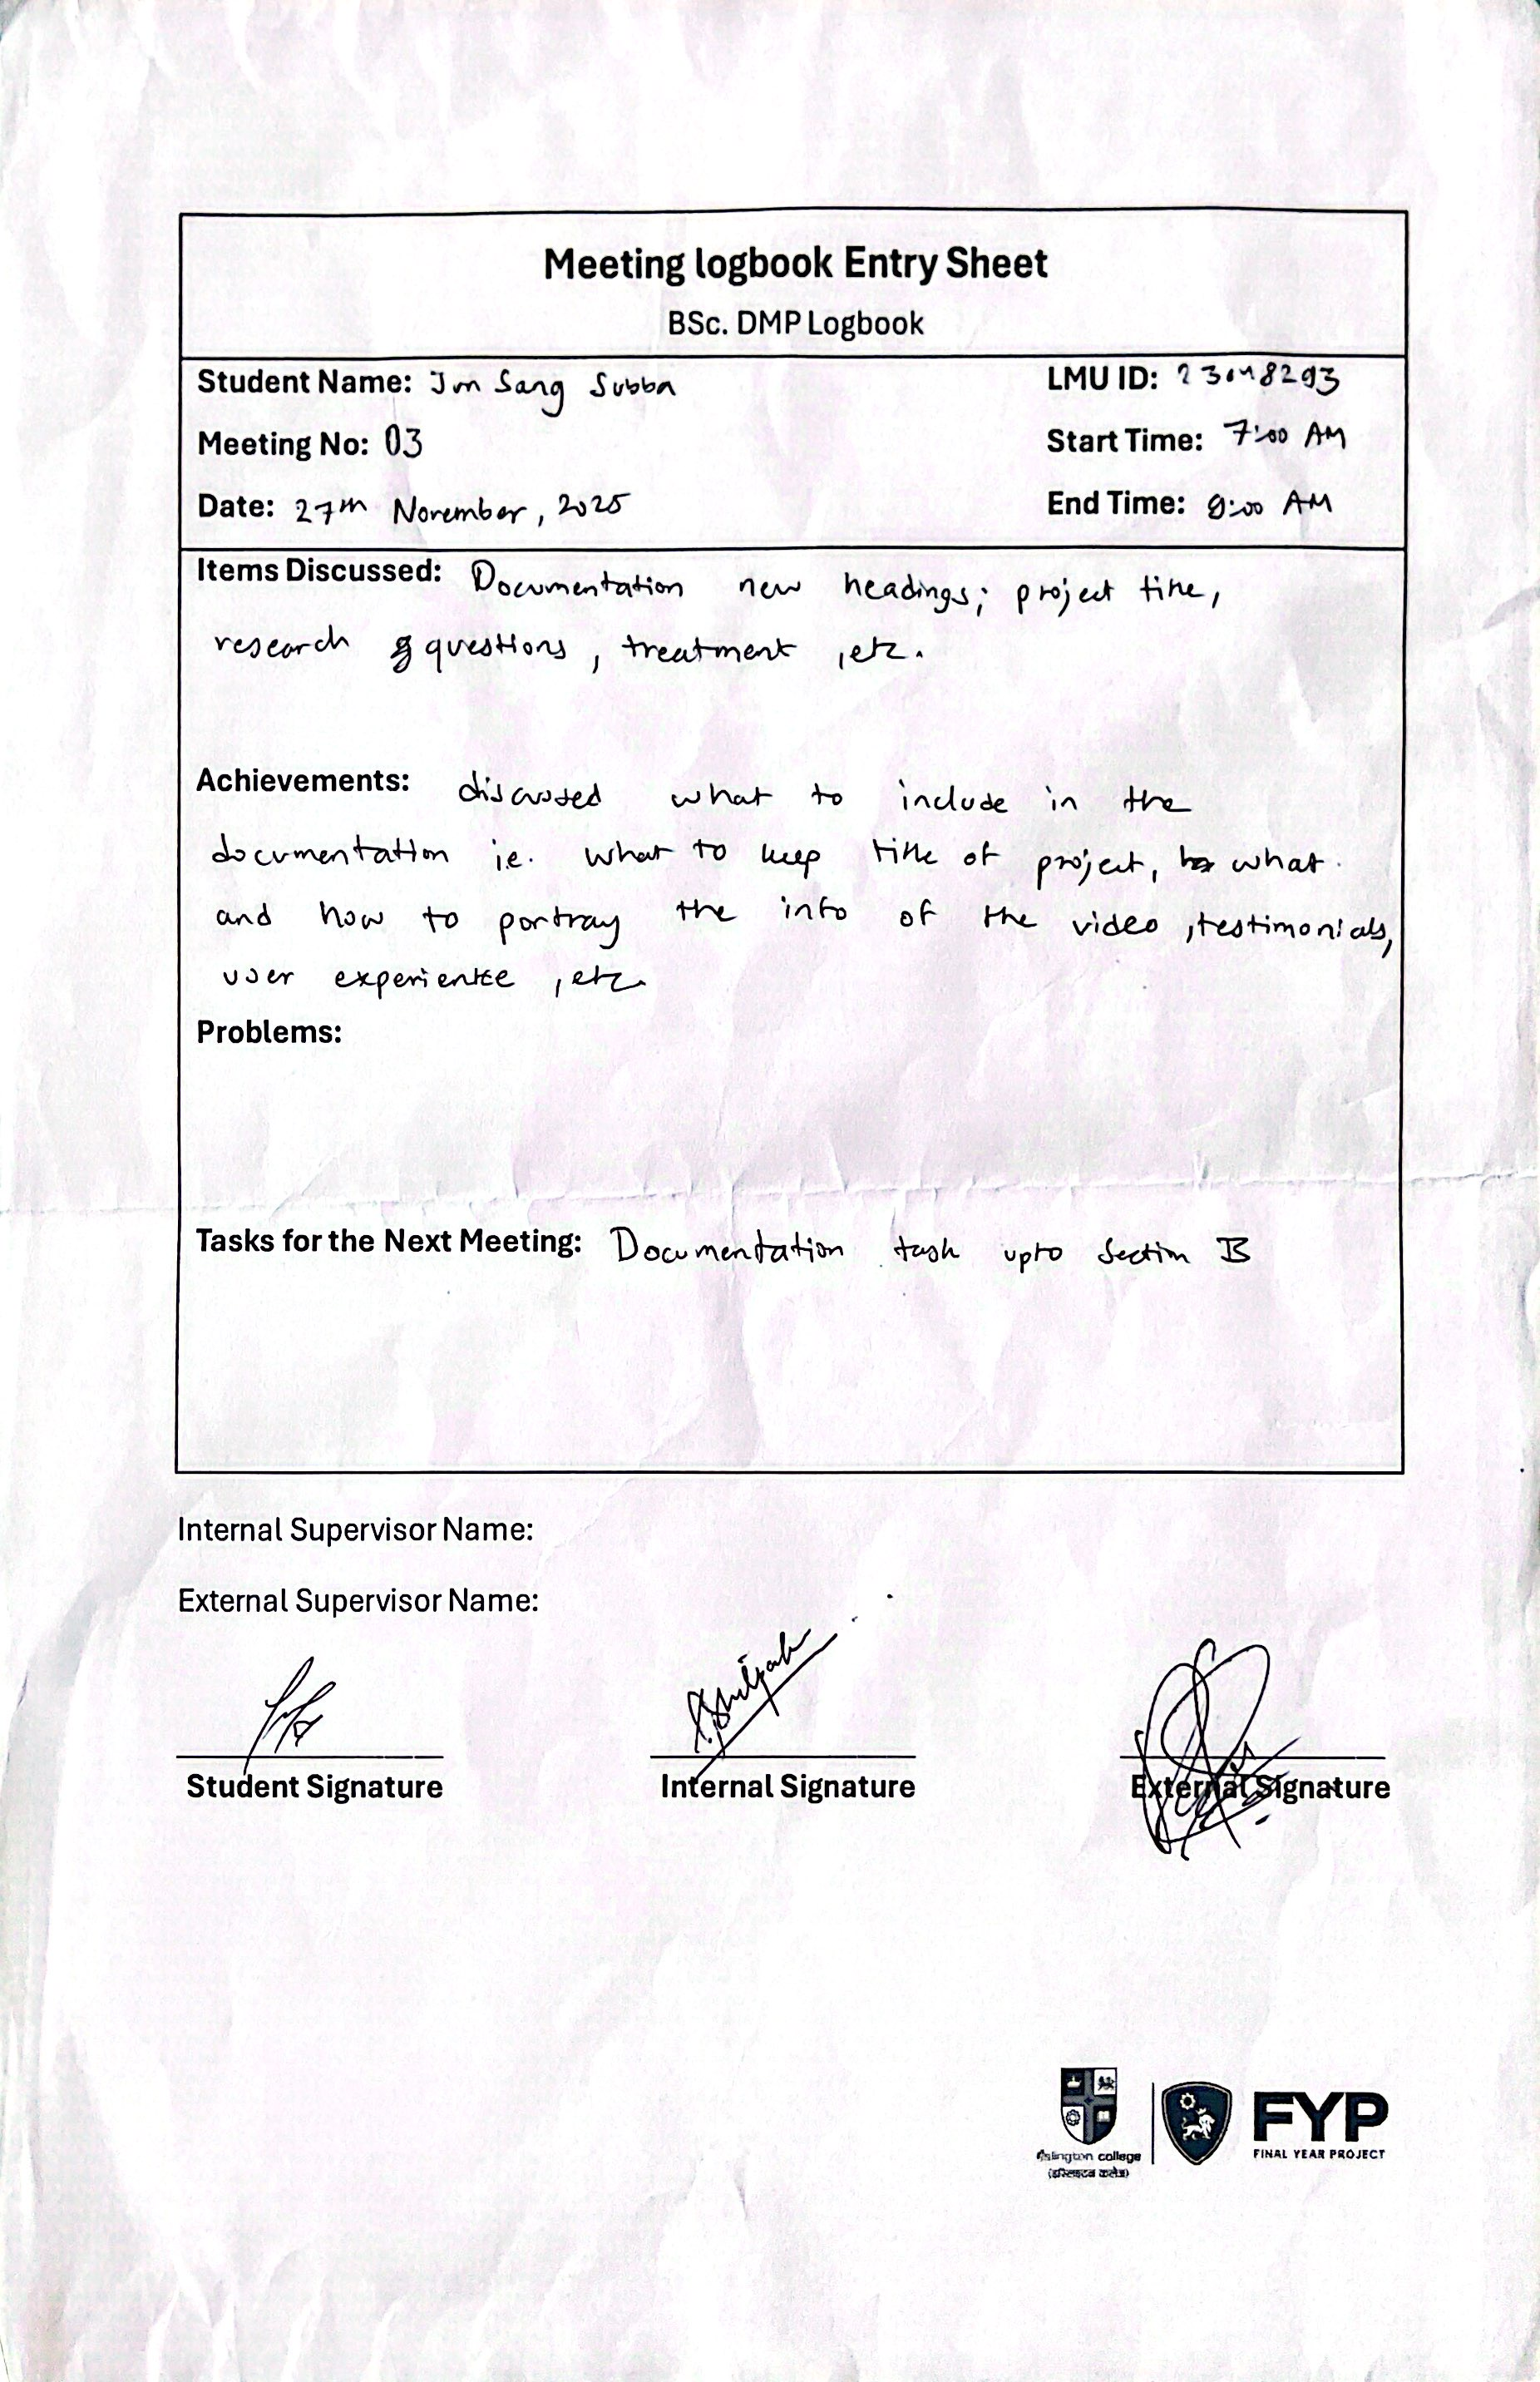 Meeting logbook Entry Sheet
BSc. DMP Logbook
Student Name: Jm Sang Subba
LMU ID: 23048293
Meeting No: 03
Start Time: 7:00 AM
Date: 27th November, 2025
End Time: 9:00 AM
Items Discussed: Documentation new headings; project title,
research questions, treatment, etc.
Achievements: discussed what to include in the
documentation i.e. what to keep title of project, what
and how to portray the info of the video, testimonials,
user experience, etc.
Problems:
Tasks for the Next Meeting: Documentation task upto Section B
Internal Supervisor Name:
External Supervisor Name:
Student Signature
Internal Signature
External Signature
FYP
islington college
FINAL YEAR PROJECT
(इस्लिङ्टन कलेज)